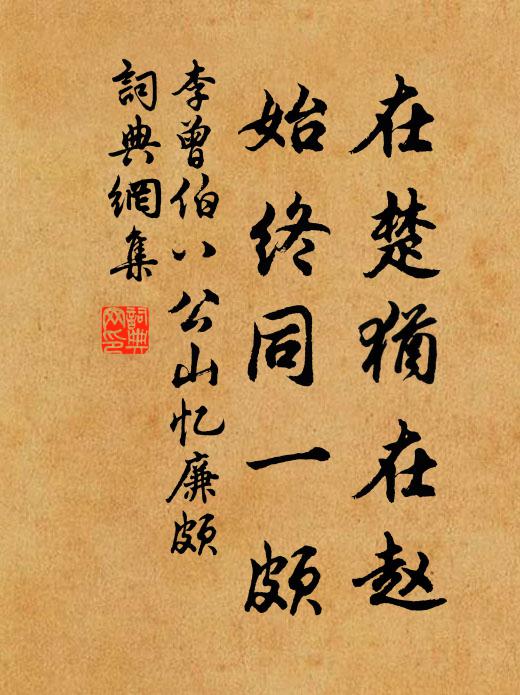 在楚犹在赵
始终同一颇
李曾伯八公山忆廉颇
詞典網集
詞典網印